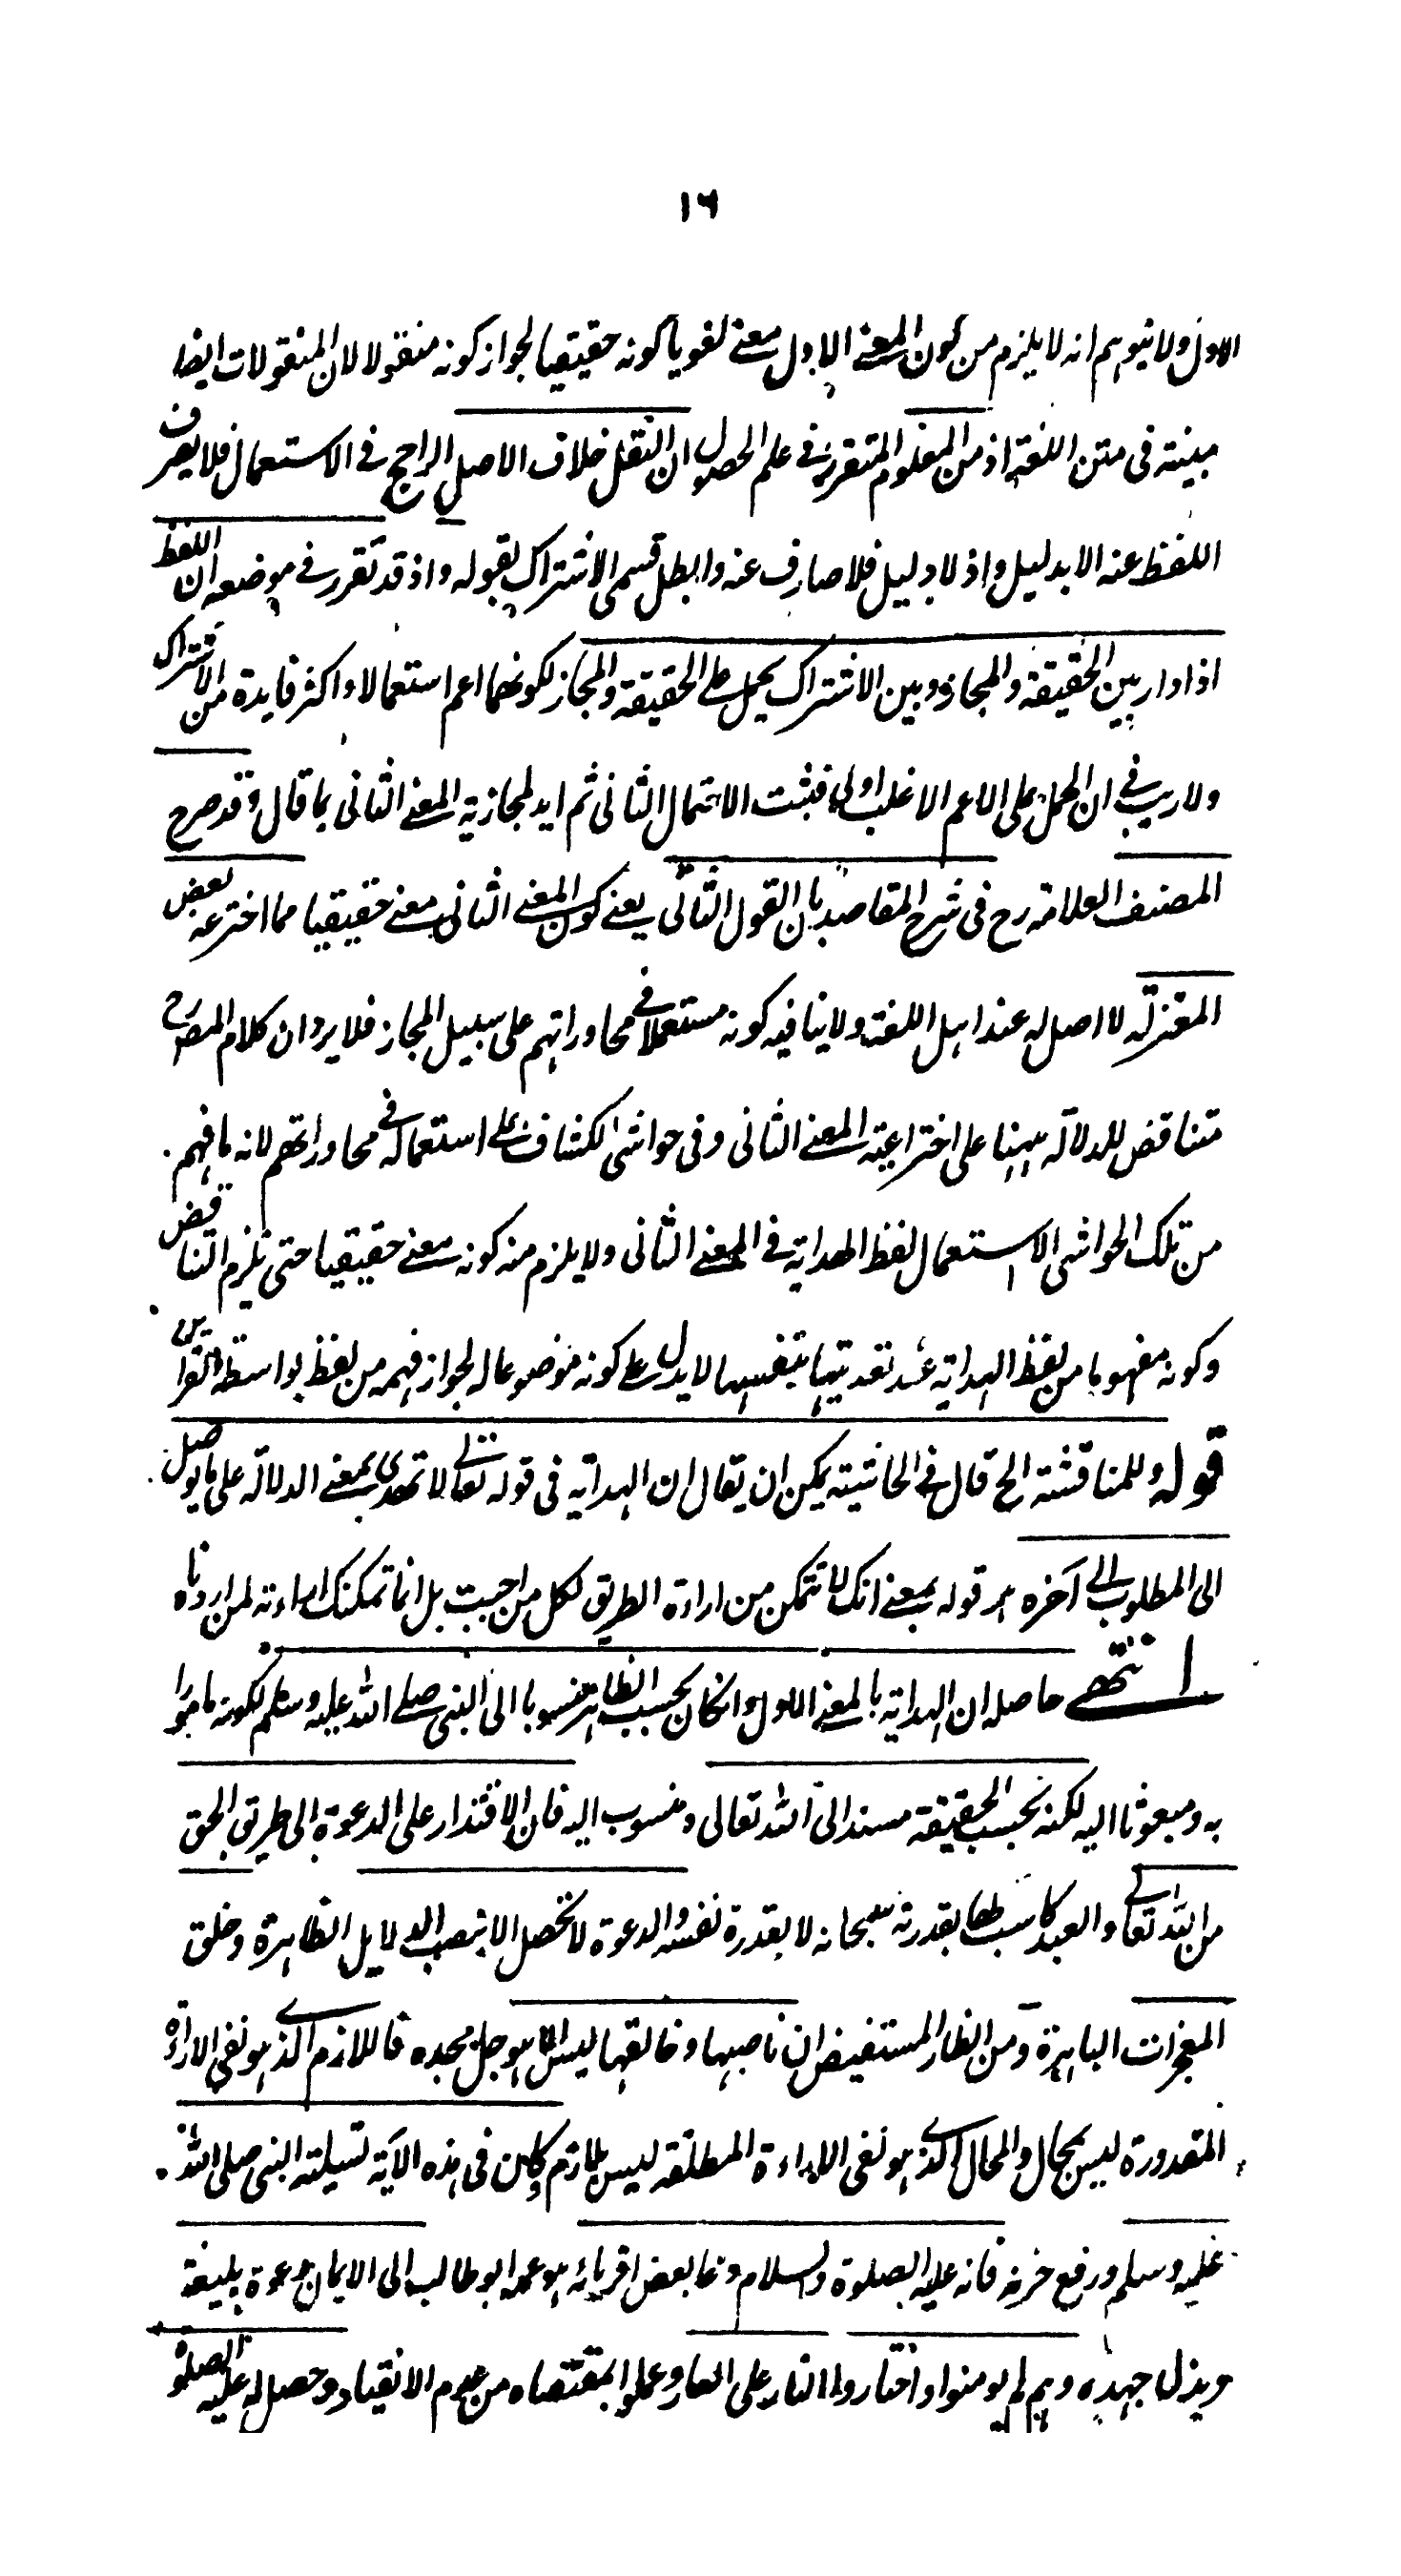 ١٦
الاول ولا يتوهم انه لا يلزم من كون المعنے الاول معنے لغويا كونه حقيقيا لجواز كونه منقولا لان المنقولات ايضا
مبينة فى متن اللغة اذ من المعلوم المتقرر فے علم الحصول ان النقل خلاف الاصل الراجح فے الاستعمال فلا يصرف
اللفظ عنه الا بدليل واذ لا دليل فلا صارف عنه وابطل قسمى الاشتراك بقوله واذ قد تقرر فے موضعه ان اللفظ
اذا دار بين الحقيقة والمجاز وبين الاشتراك يحمل علے الحقيقة والمجاز لكونهما اعم استعمالا واكثر فايدة من الاشتراك
ولا ريب فے ان الحمل على الاعم الاغلب اولى فثبت الاحتمال الثانى ثم ايد لمجازية المعنے الثانى بما قال وقد صرح
المصنف العلامة رح فى شرح المقاصد بان القول الثانى يعنے كون المعنے الثانى معنے حقيقيا مما اخترعه بعض
المعتزلة لا اصل له عند اهل اللغة ولا ينافيه كونه مستعملا فے محاوراتهم على سبيل المجاز فلا يرد ان كلام المص رح
متناقض للدلالة ههنا على اختراعية المعنے الثانى وفى حواشى الكشاف علے استعماله فے محاوراتهم لانه ما فهم
من تلك الحواشى الا استعمال لفظ الهداية فے المعنے الثانى ولا يلزم منه كونه معنے حقيقيا حتى يلزم التناقض
وكونه مفهوما من لفظ الهداية عند تعديتها بنفسها لا يدل علے كونه موضوعا له لجواز فهمه من لفظ بواسطة القراين
قوله وللمناقشة الخ قال فے الحاشية يمكن ان يقال ان الهداية فى قوله تعالے لا تهدى بمعنے الدلالة على ما يوصل
الى المطلوب الى آخره قوله بمعنے انك لا تتمكن من اراءة الطريق لكل من احببت بل انما تمكنك اراءته لمن اردناه
انتهے حاصله ان الهداية بالمعنے الاول وان كان بحسب الظاهر منسوبا الى النبى صلے الله عليه وسلم لكونه مامورا
به ومبعوثا اليه لكنه بحسب الحقيقة مسند الى الله تعالى ومنسوب اليه فان الاقتدار على الدعوة الى طريق الحق
من الله تعالے والعبد كاسب لها بقدرته سبحانه لا بقدرة نفسه والدعوة لا تحصل الا بنصب الدلايل الظاهرة وخلق
المعجزات الباهرة ومن الظاهر المستفيض ان ناصبها وخالقها ليس الا هو جل مجده فاللازم الذے هو نفى الاراءة
المقدورة ليس بمحال والمحال الذے هو نفى الاراءة المطلقة ليس بلازم وكان فى هذه الآية تسلية النبى صلى الله
عليه وسلم ورفع حزنه فانه عليه الصلوة والسلام دعا بعض اقربائه هو عمه ابو طالب الى الايمان دعوة بليغة
وبذل جهده وهم لم يومنوا واختاروا النار على العار وعملوا بمقتضاه من عدم الانقياد وحصل له عليه الصلوة